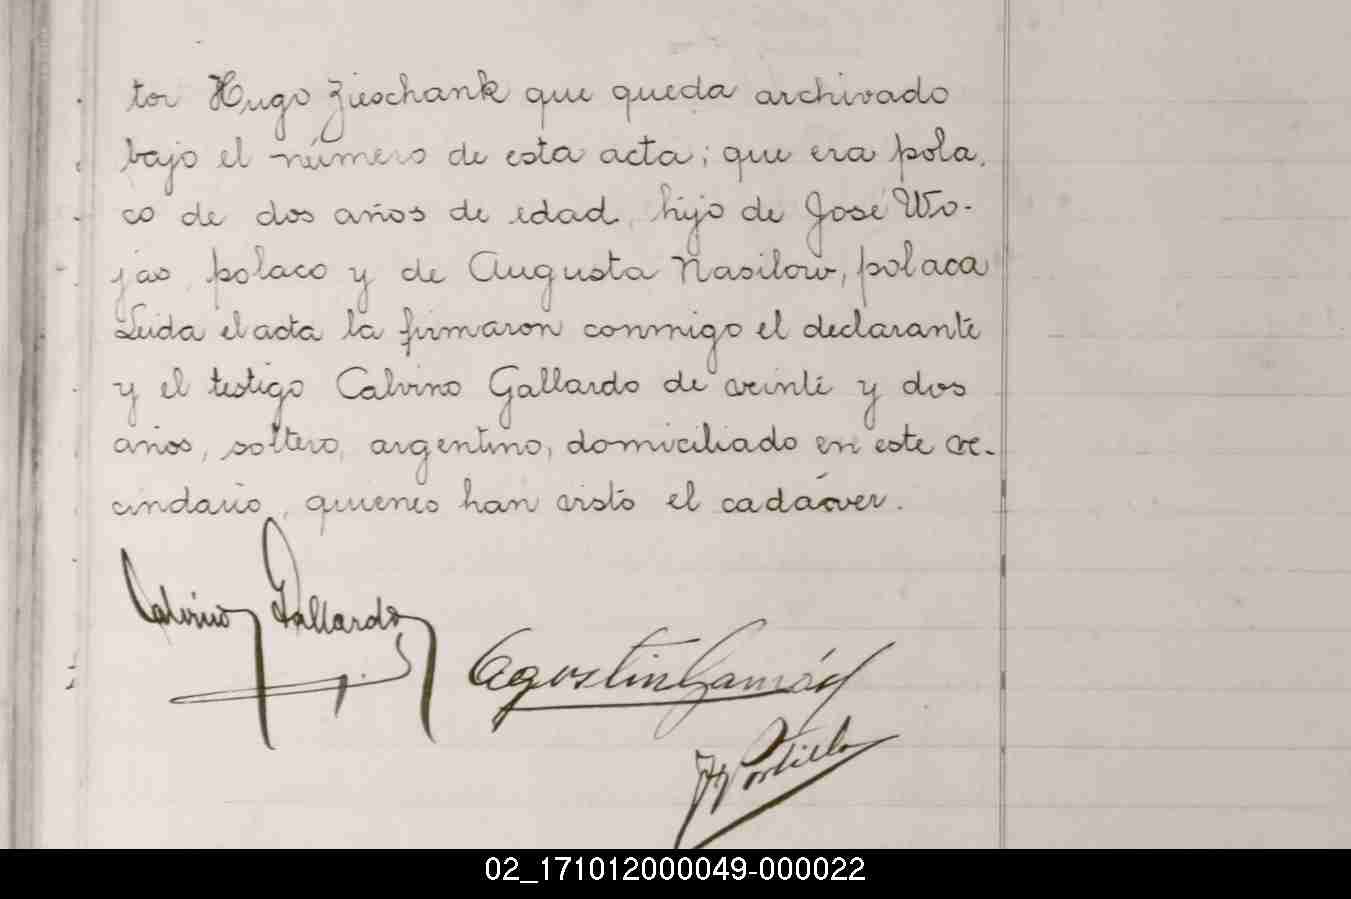 tor Hugo Zieschank que queda archivado
bajo el número de esta acta; que era pola.
co de dos años de edad, hijo de José Wo-
jas, polaco y de Augusta Nasilow, polaca
Leida el acta la firmaron conmigo el declarante
y el testigo Calvino Gallardo de veinte y dos
años, soltero, argentino, domiciliado en este ve-
cindario, quienes han visto el cadáver.
Calvino Gallardo
Agustin
Portillo
02_171012000049-000022